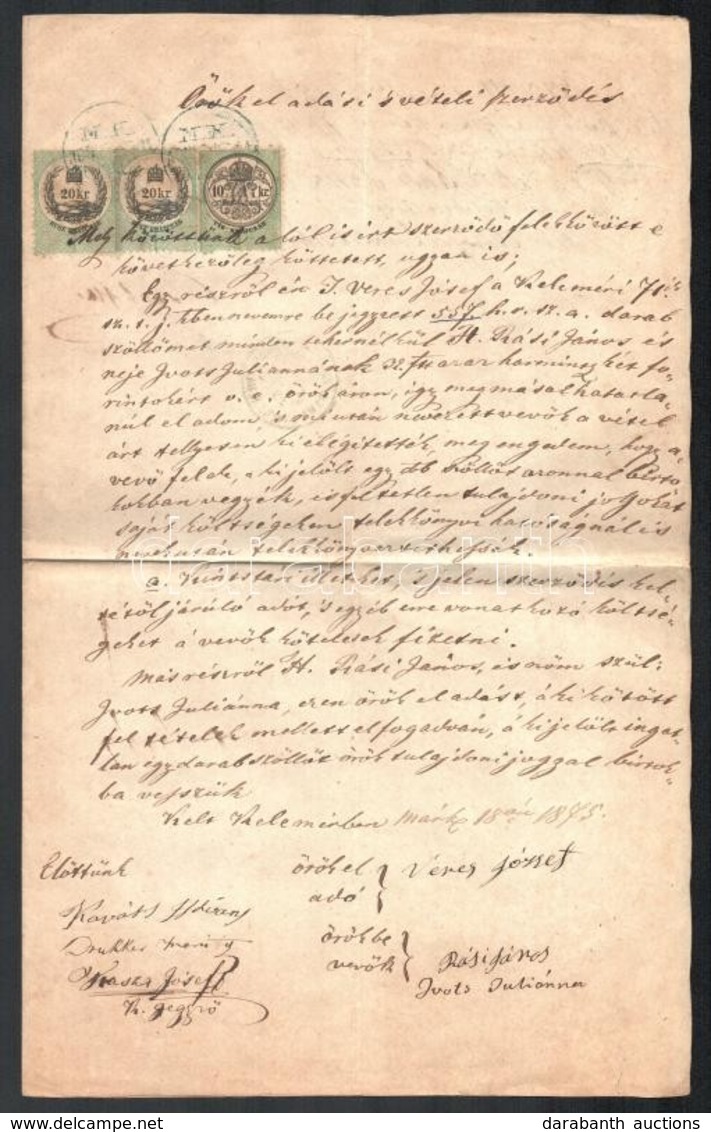 Örök el adási s vételi szerződés
20 kr 20 kr 10 kr
Mely a lól is irt szerződő felek között
következőleg köttetett, ugyan is;
Egy részről én I. Veres Jósef a Keleméri
sz. t. j. ben nevemre be jegyzett 557 h. r. sz. a. darab
szöllőmet minden teher nélkül H. Rási János és
neje Ivots Juliannának 32. ftt azaz harmintz két fo-
rintokért o. é. örök áron, igy meg másolhatatla-
núl el adom, s miután nevezett vevők a vétel
árt tellyesen ki elégítették, meg engedem, hogy a
vevő felek, a ki jelölt egy db szöllőt azonnal birto
kokban vegyék, is feltetlen tulajdoni jogokat
saját költségeken telekkönyvi hatóságnál is
nevek után telekkönyveztethessék.
a. Kintstári illetket, s jelen szerződés kel-
tétől járúló adót, s egyéb erre vonatkozó költsé-
geket a vevők kötelesek fizetni.
Más részről H. Rási János, és nőm szül:
Ivots Juliánna, ezen örök el adást, a ki kötött
fel tételek mellett el fogadván, a ki jelölt ingat-
lan egy darab szöllőt örök tulajdoni joggal birtok-
ba vesszük
Kelt Kelemérben 18 án 1875.
Előttünk örök el adó Veres József
Kováts
örökbe vevők Rási János
Kasza Jósef Ivots Juliánna
K. jegyző
darabanth
darabanth auctions